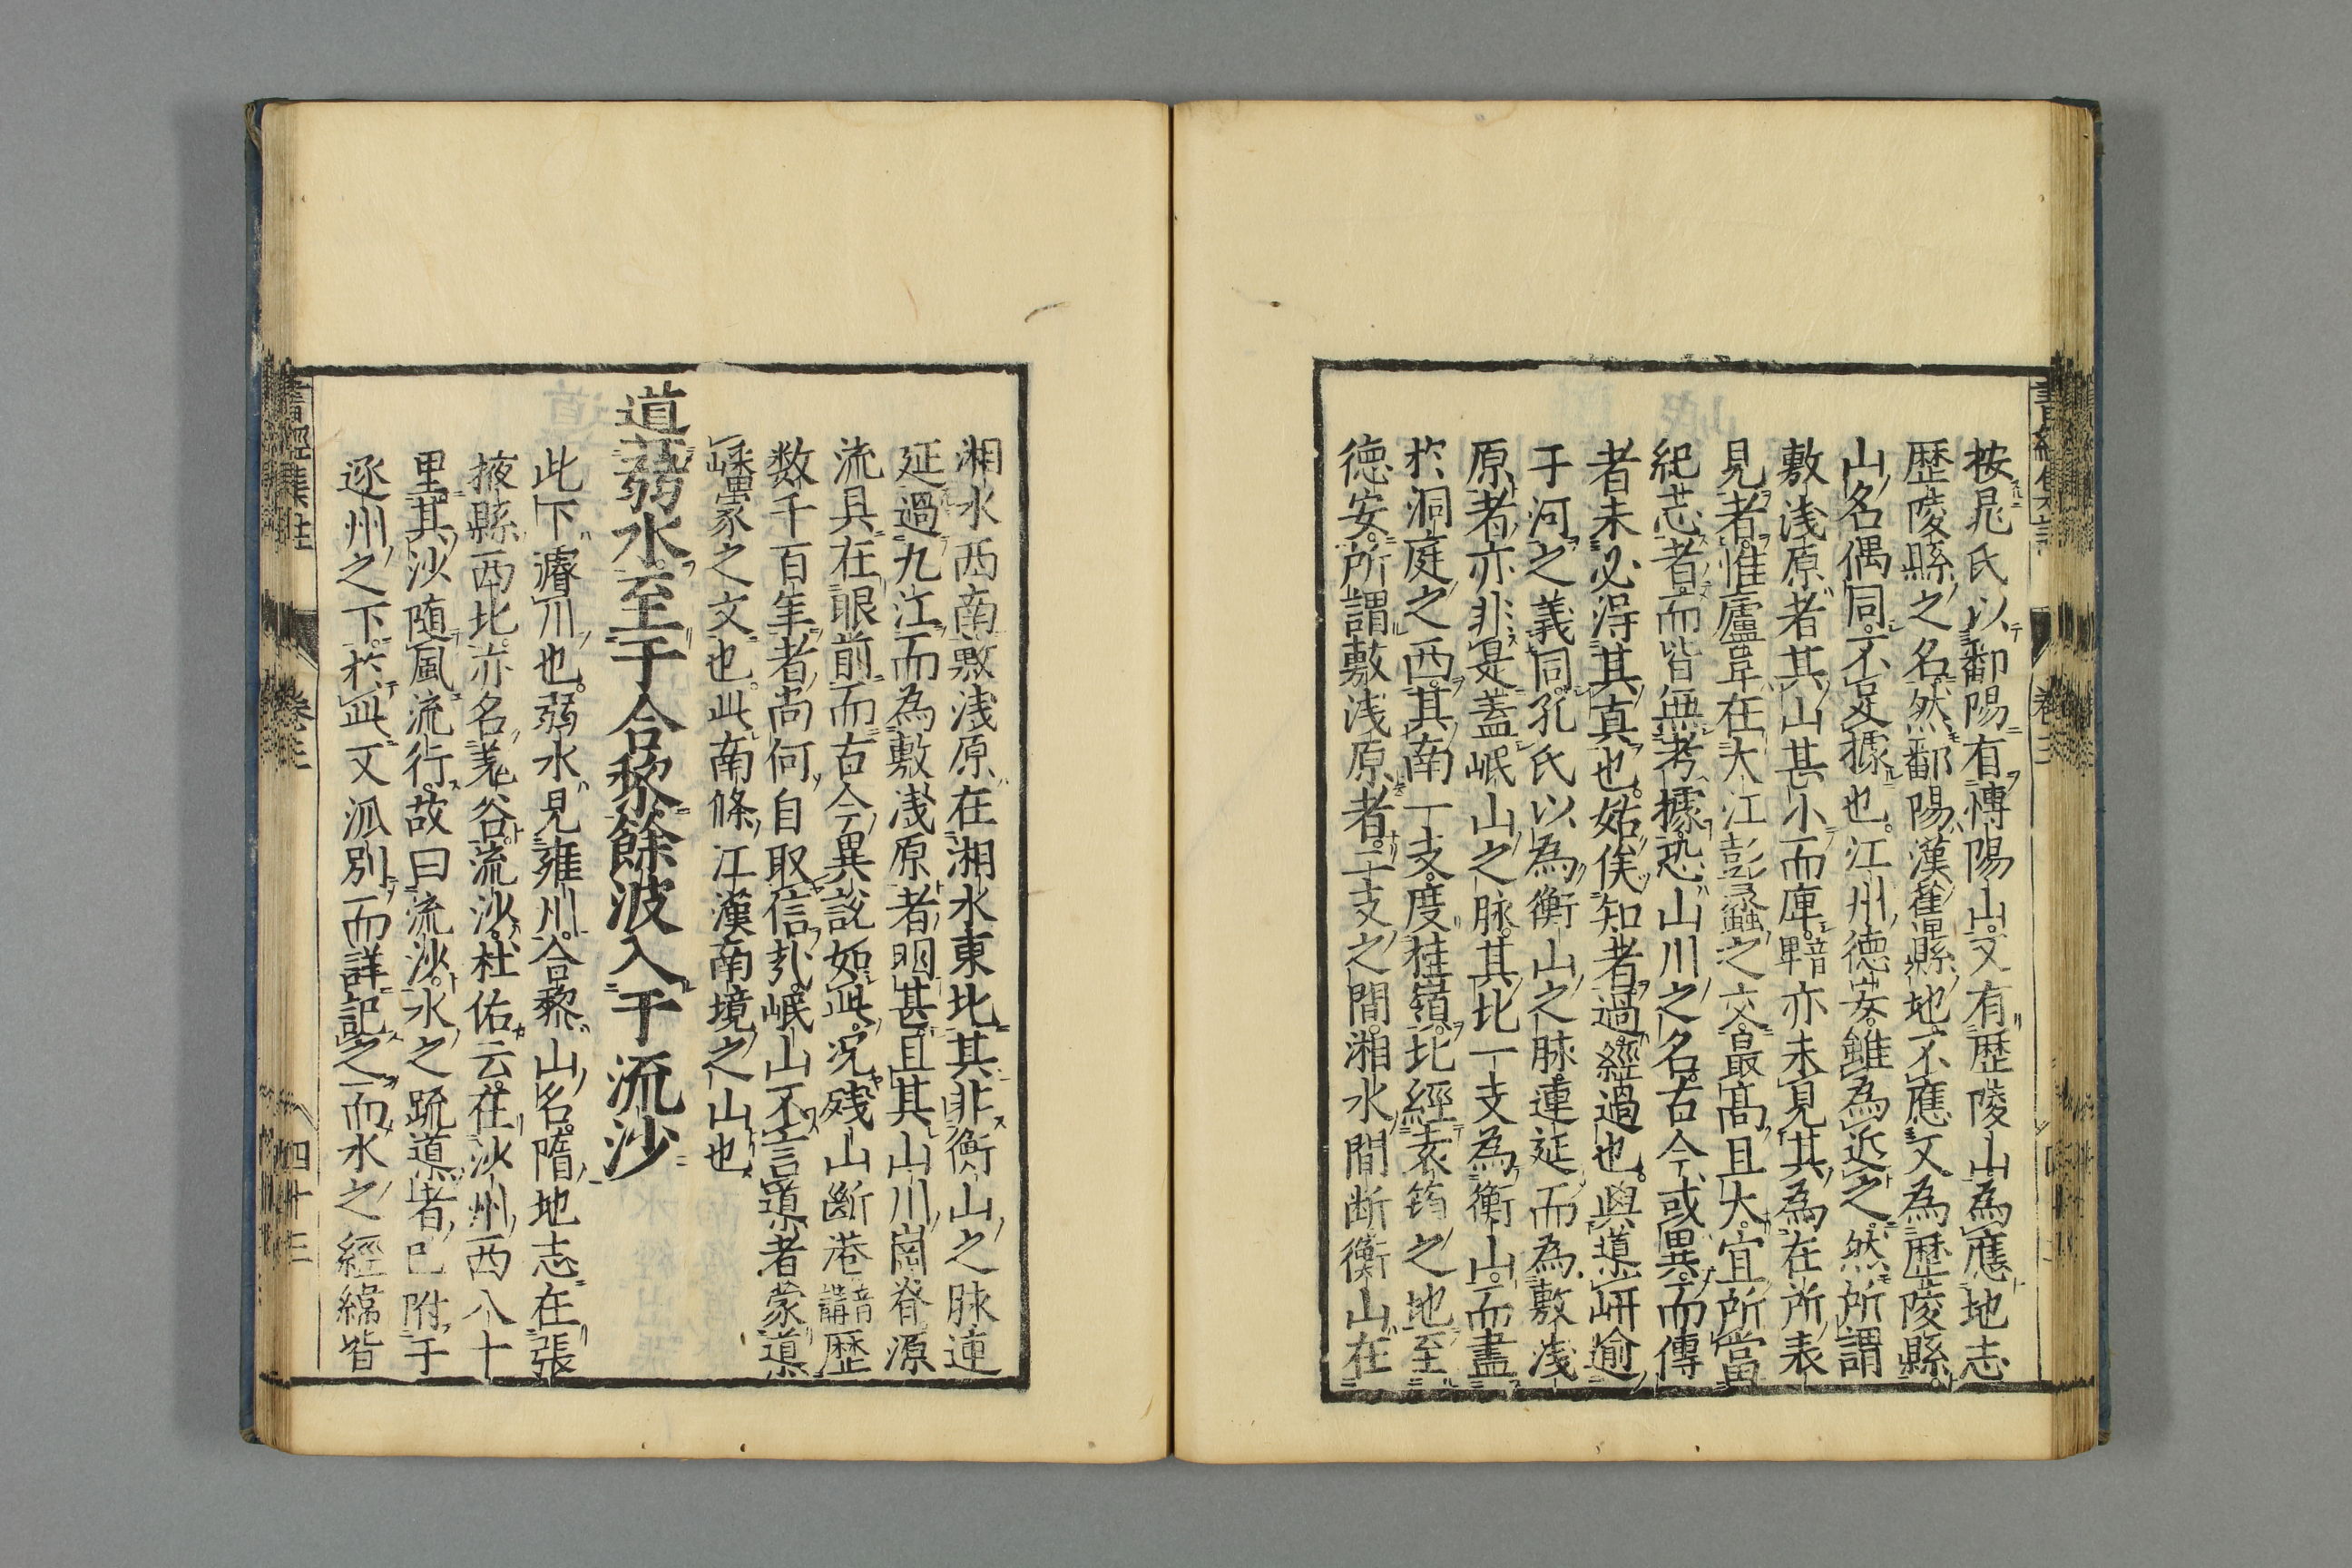 按晁氏以鄱陽有博陽山又有歴陵山為應地志
歴陵縣之名然鄱陽漢舊縣地不應又為歴陵縣
山名偶同不足據也江州德安雖為近之然所謂
敷淺原者其山甚小而庳鞥亦未見其為在所表
見者惟廬阜在大江彭蠡之交最高且大宜所當
紀志者而皆無考據恐山川之名古今或異而傳
者未必得其真也姑俟知者過經過也與導岍逾
于河之義同孔氏以為衡山之脉連延而為敷淺
原者亦非是蓋岷山之脉其北一支為衡山而盡
於洞庭之西其南一支度桂嶺北經袁筠之地至
德安所謂敷淺原者二支之間湘水間断衡山在
湘水西南敷淺原在湘水東北其非衡山之脉連
延過九江而為敷淺原者明甚且其山川崗脊源
流具在眼前而古今異說如此况殘山斷港音講歴
数千百年者尚何自取信哉岷山不言導者蒙導
嶓冢之文也此南條江漢南境之山也
導弱水至于合黎餘波入于流沙
此下濬川也弱水見雍州合黎山名隋地志在張
掖縣西北亦名羌谷流沙杜佑云在沙州西八十
里其沙随風流行故曰流沙水之䟽導者已附于
逐州之下於此又派別而詳記之而水之經緯皆
書經集註 卷三 四十三